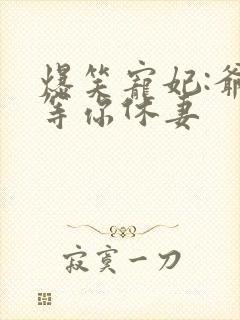 爆笑寵妃:爺
等你休妻
寂寞一刀